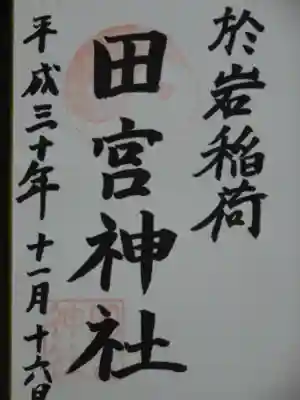 於岩稲荷
田宮神社
平成三十年 十一月十六日